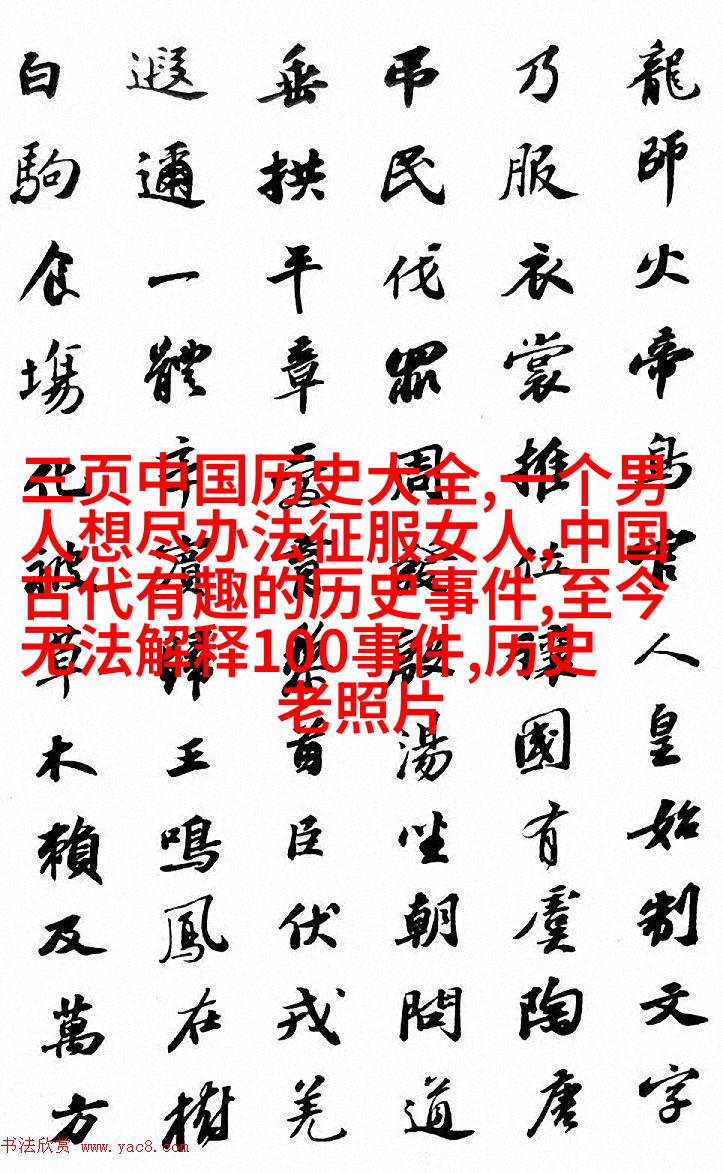 龍師火帝鳥官人皇始制文字
乃服衣裳推位讓國有虞陶唐
吊民伐罪周發殷湯坐朝問道
垂拱平章愛育黎首臣伏戎羌
遐邇一體率賓歸王鳴鳳在樹
白駒食塲化被草木賴及萬方
三页中国历史大全,一个男
人想尽办法征服女人,中国
古代有趣的历史事件,至今
无法解释100事件,历史
老照片
书法欣赏 www.yac8.com